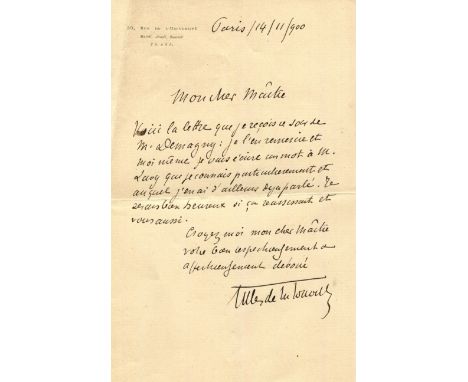 Paris / 14 / 11 / 900
Mon cher Maître
Voici la lettre que je reçois ce soir de
M. Demagny: je l'en remercie et
moi même je vais écrire un mot à M.
que je connais particulièrement et
auquel j'en ai d'ailleurs déjà parlé. Je
serais bien heureux si ça réussissait et
vous aussi.
Croyez moi mon cher Maître
votre bien respectueusement &
affectueusement dévoué